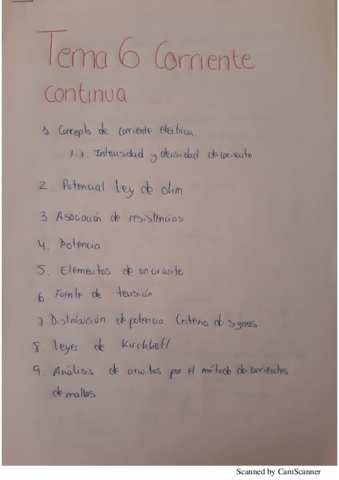 Tema 6 Corriente
continua
1. Concepto de corriente eléctrica.
1.1. Intensidad y densidad de corriente
2. Potencial Ley de ohm
3 Asociación de resistencias
4. Potencia
5. Elementos de un circuito
6. Fuente de tensión
7 Distribución de potencia Criterio de signos
8. Leyes de Kirchhoff
9. Análisis de circuitos por el método de corrientes
de mallas
Scanned by CamScanner